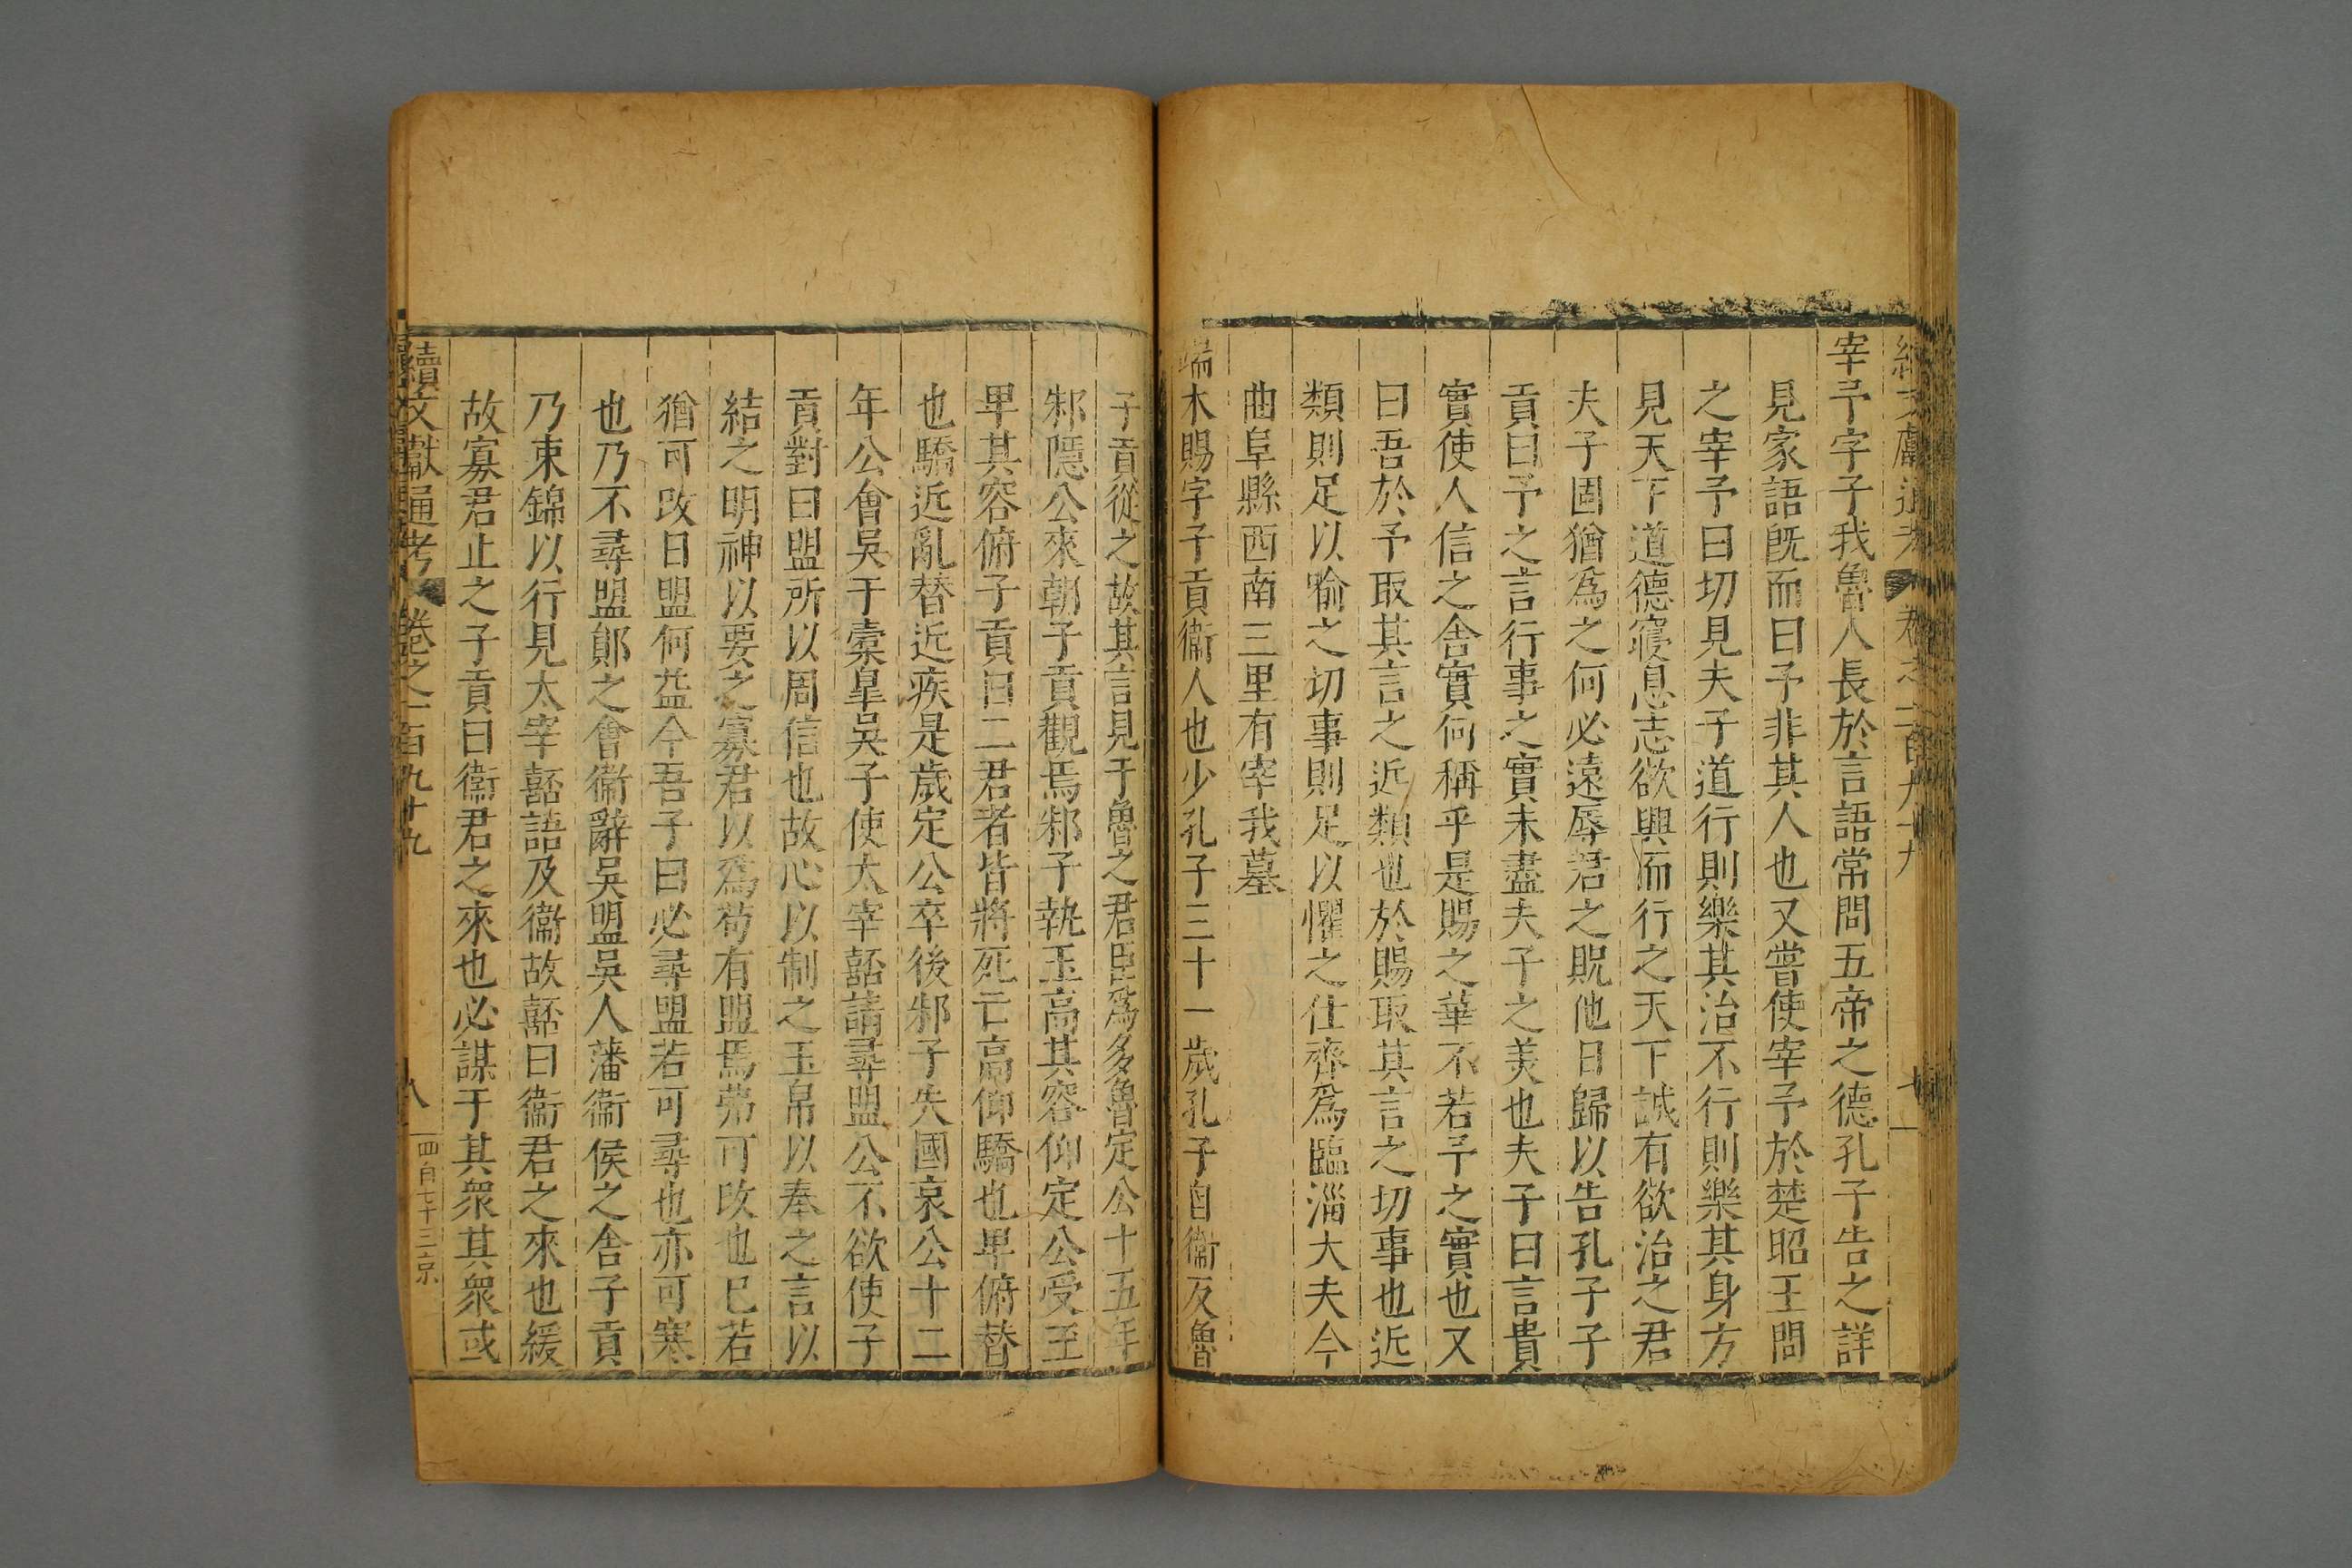 續文獻通考 卷之一百九十九 七
宰予字子我魯人長於言語常問五帝之德孔子告之詳
見家語旣而曰予非其人也又嘗使宰予於楚昭王問
之宰予曰切見夫子道行則樂其治不行則樂其身方
見天下道德寢息志欲興而行之天下誠有欲治之君
夫子固猶爲之何必遠辱君之貺他日歸以告孔子子
貢曰予之言行事之實未盡夫子之美也夫子曰言貴
實使人信之舍實何稱乎是賜之華不若予之實也又
曰吾於予取其言之近類也於賜取其言之切事也近
類則足以喻之切事則足以懼之仕齊爲臨淄大夫今
曲阜縣西南三里有宰我墓
端木賜字子貢衞人也少孔子三十一歲孔子自衞反魯
子貢從之故其言見于魯之君臣爲多魯定公十五年
邾隱公來朝子貢觀焉邾子執玉高其容仰定公受玉
卑其容俯子貢曰二君者皆將死亡高仰驕也卑俯替
也驕近亂替近疾是歲定公卒後邾子失國哀公十二
年公會吳于橐皋吳子使太宰嚭請尋盟公不欲使子
貢對曰盟所以周信也故心以制之玉帛以奉之言以
結之明神以要之寡君以爲苟有盟焉弗可改也已若
猶可改日盟何益今吾子曰必尋盟若可尋也亦可寒
也乃不尋盟鄖之會衞辭吳盟吳人藩衞侯之舍子貢
乃束錦以行見太宰嚭語及衞故嚭曰衞君之來也緩
故寡君止之子貢曰衞君之來也必謀于其衆其衆或
續文獻通考 卷之一百九十九 八 四百七十三 京